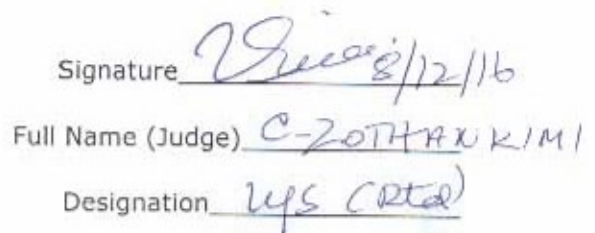 Signature 8/12/16
Full Name (Judge) C-ZOTHANKIMI
Designation (Rtd)